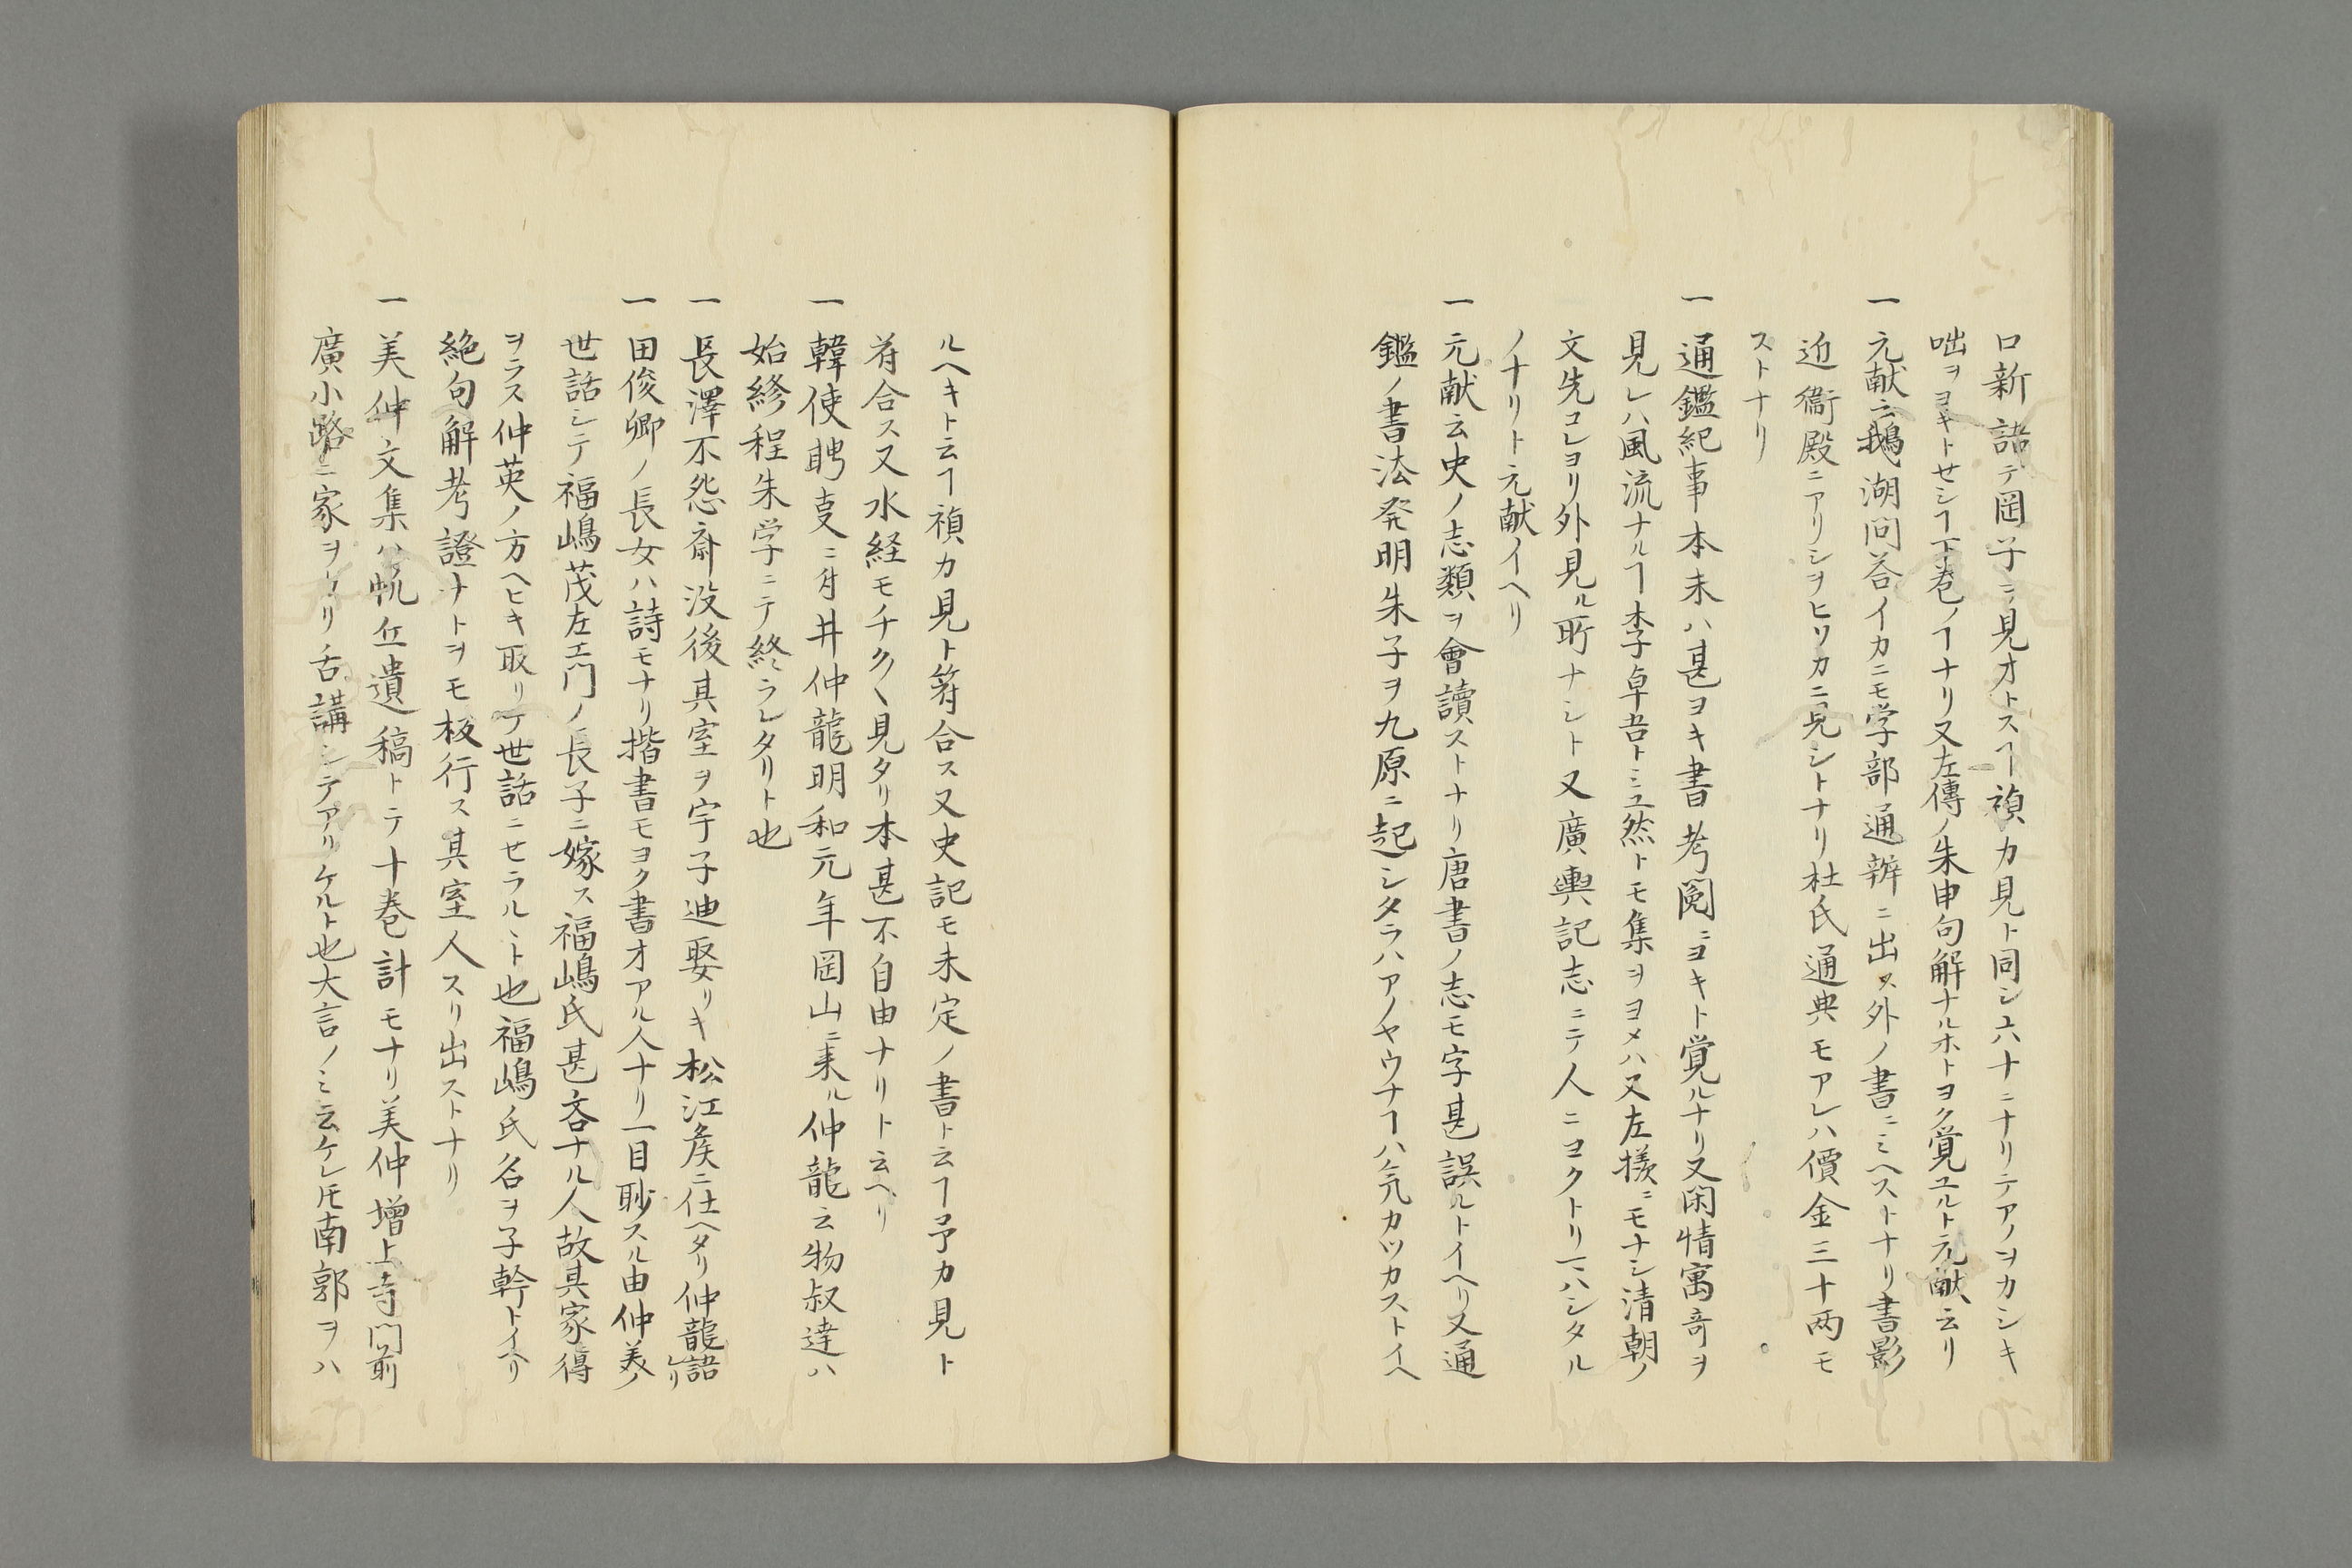 口新語テ岡子ニ見オトスヿ禎カ見ト同シ六十ニナリテアノヲカシキ
咄ヲヨキトセシヿ下巻ノヿナリ又左傳ノ朱申句解ナルホトヨク覚ユルト元献云リ
一 元献云鵝湖問答イカニモ学部通辨ニ出ス外ノ書ニミヘストナリ書影
近衞殿ニアリシヲヒソカニ見シトナリ杜氏通典モアレハ價金三十両モ
ストナリ
一 通鑑紀事本末ハ甚ヨキ書考閲ニヨキト覚ルナリ又閑情寓奇ヲ
見レハ風流ナルヿ李卓吾トミユ然トモ集ヲヨメハ又左様ニモナシ清朝ノ
文先コレヨリ外見ル所ナシト又廣輿記志ニテ人ニヨクトリハハシタル
ノナリト元献イヘリ
一 元献云史ノ志類ヲ會讀ストナリ唐書ノ志モ字甚誤ルトイヘリ又通
鑑ノ書法発明朱子ヲ九原ニ起シタラハアノヤウナヿハ気カツカストイヘ
ルヘキト云ヿ禎カ見ト符合ス又史記モ未定ノ書ト云ヿ予カ見ト
符合ス又水経モチク〱見タリ本甚不自由ナリト云ヘリ
一 韓使聘㕝ニ付井仲龍明和元年岡山ニ来ル仲龍云物叔達ハ
始終程朱学ニテ終ラレタリト也
一 長澤不怨斎没後其室ヲ宇子迪娶リキ松江矦ニ仕ヘタリ仲龍語レリ
一 田俊卿ノ長女ハ詩モナリ揩書モヨク書オアル人ナリ一目眇スル由仲美ノ
世話シテ福嶋茂左エ门ノ長子ニ嫁ス福嶋氏甚吝ナル人故其家得
ヲラス仲英ノ方ヘヒキ取リテ世話ニセラルヽト也福嶋氏名ヲ子幹トイヘリ
絶句解考證ナトヲモ板行ス其室人スリ出ストナリ
一 美仲文集ハ帆丘遺稿トテ十巻計モナリ美仲增上寺門前
廣小路ニ家ヲソリ舌講シテアリケルト也大言ノミ云ケレ𪜈南郭ヲハ